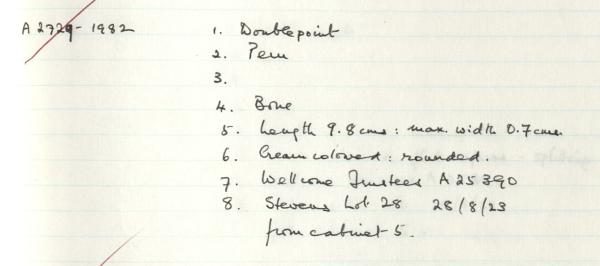 A 2729-1982 1. Doublepoint
2. Peru
3.
4. Bone
5. Length 9.8cms : max. width 0.7cms.
6. Cream coloured : rounded.
7. Wellcome Trustees A 25390
8. Stevens Lot 28 28/8/23
from cabinet 5.